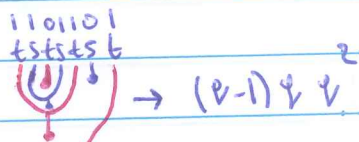 1101101
tststst
→ (q-1) q q²